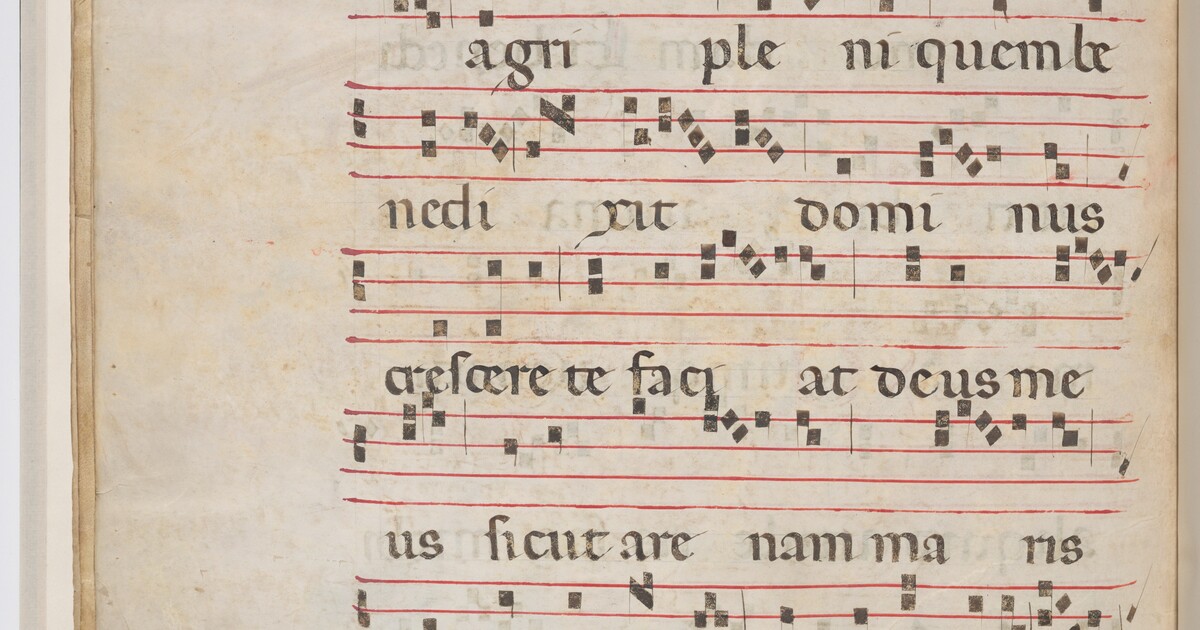 agri ple ni quem be
nedi xit domi nus
crescere te faci at deus me
us sicut are nam ma ris